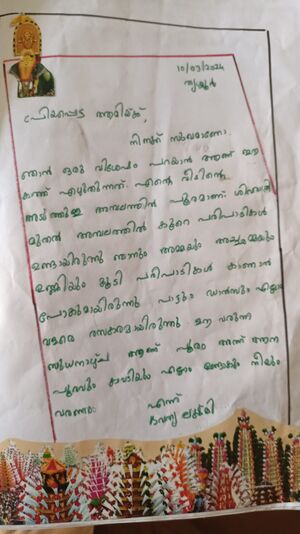 10/03/2024
തൃശൂർ
പ്രിയപ്പെട്ട ആമിയ്ക്ക്,
നിനക്ക് സുഖമാണോ.
ഞാൻ ഒരു വിശേഷം പറയാൻ ആണ് ഈ
കത്ത് എഴുതിന്നത്. എന്റെ വീടിന്റെ
അടുത്തുള്ള അമ്പലത്തിൽ പൂരമാണ്. ശിവരാത്രി
മുതൽ അമ്പലത്തിൽ കുറെ പരിപാടികൾ
ഉണ്ടായിരുന്നു ഞാനും അമ്മയും അച്ഛമ്മയും
ഉണ്ണിയും കൂടി പരിപാടികൾ കാണാൻ
പോകുമായിരുന്നു പാട്ടും ഡാൻസും എല്ലാം
വളരെ രസകരമായിരുന്നു ഈ വരുന്ന
ബുധനാഴ്ച ആണ് പൂരം അന്ന് ആന
പൂരവും കാവടിയും എല്ലാം ഉണ്ടാകും നീയും
വരണം. എന്ന്
ലക്ഷ്മി